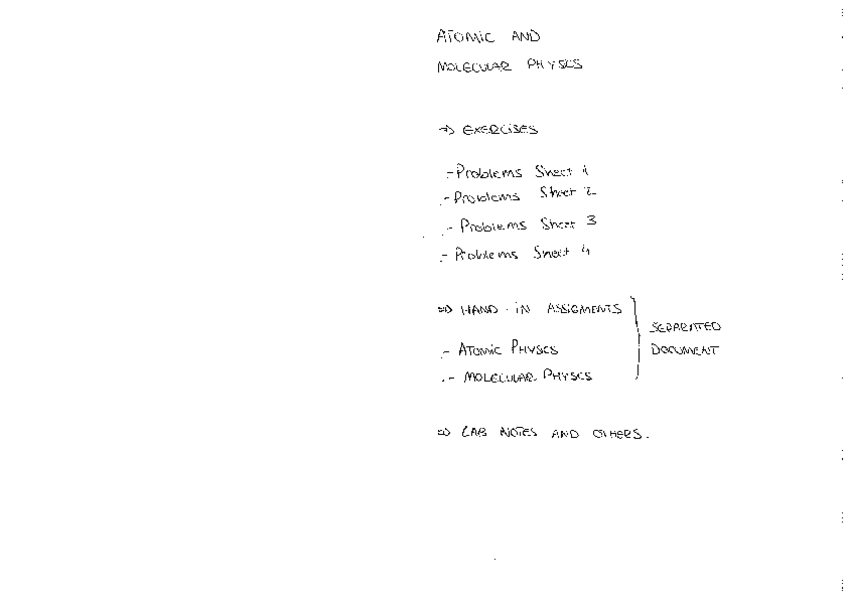 ATOMIC AND
MOLECULAR PHYSCS
⇒ EXERCISES
.- Problems Sheet 1
.- Problems Sheet 2
.- Problems Sheet 3
.- Problems Sheet 4
⇒ HAND-IN ASSIGMENTS
SEPARATED
DOCUMENT
.- ATOMIC PHYSCS
.- MOLECULAR PHYSCS
⇒ LAB NOTES AND OTHERS.